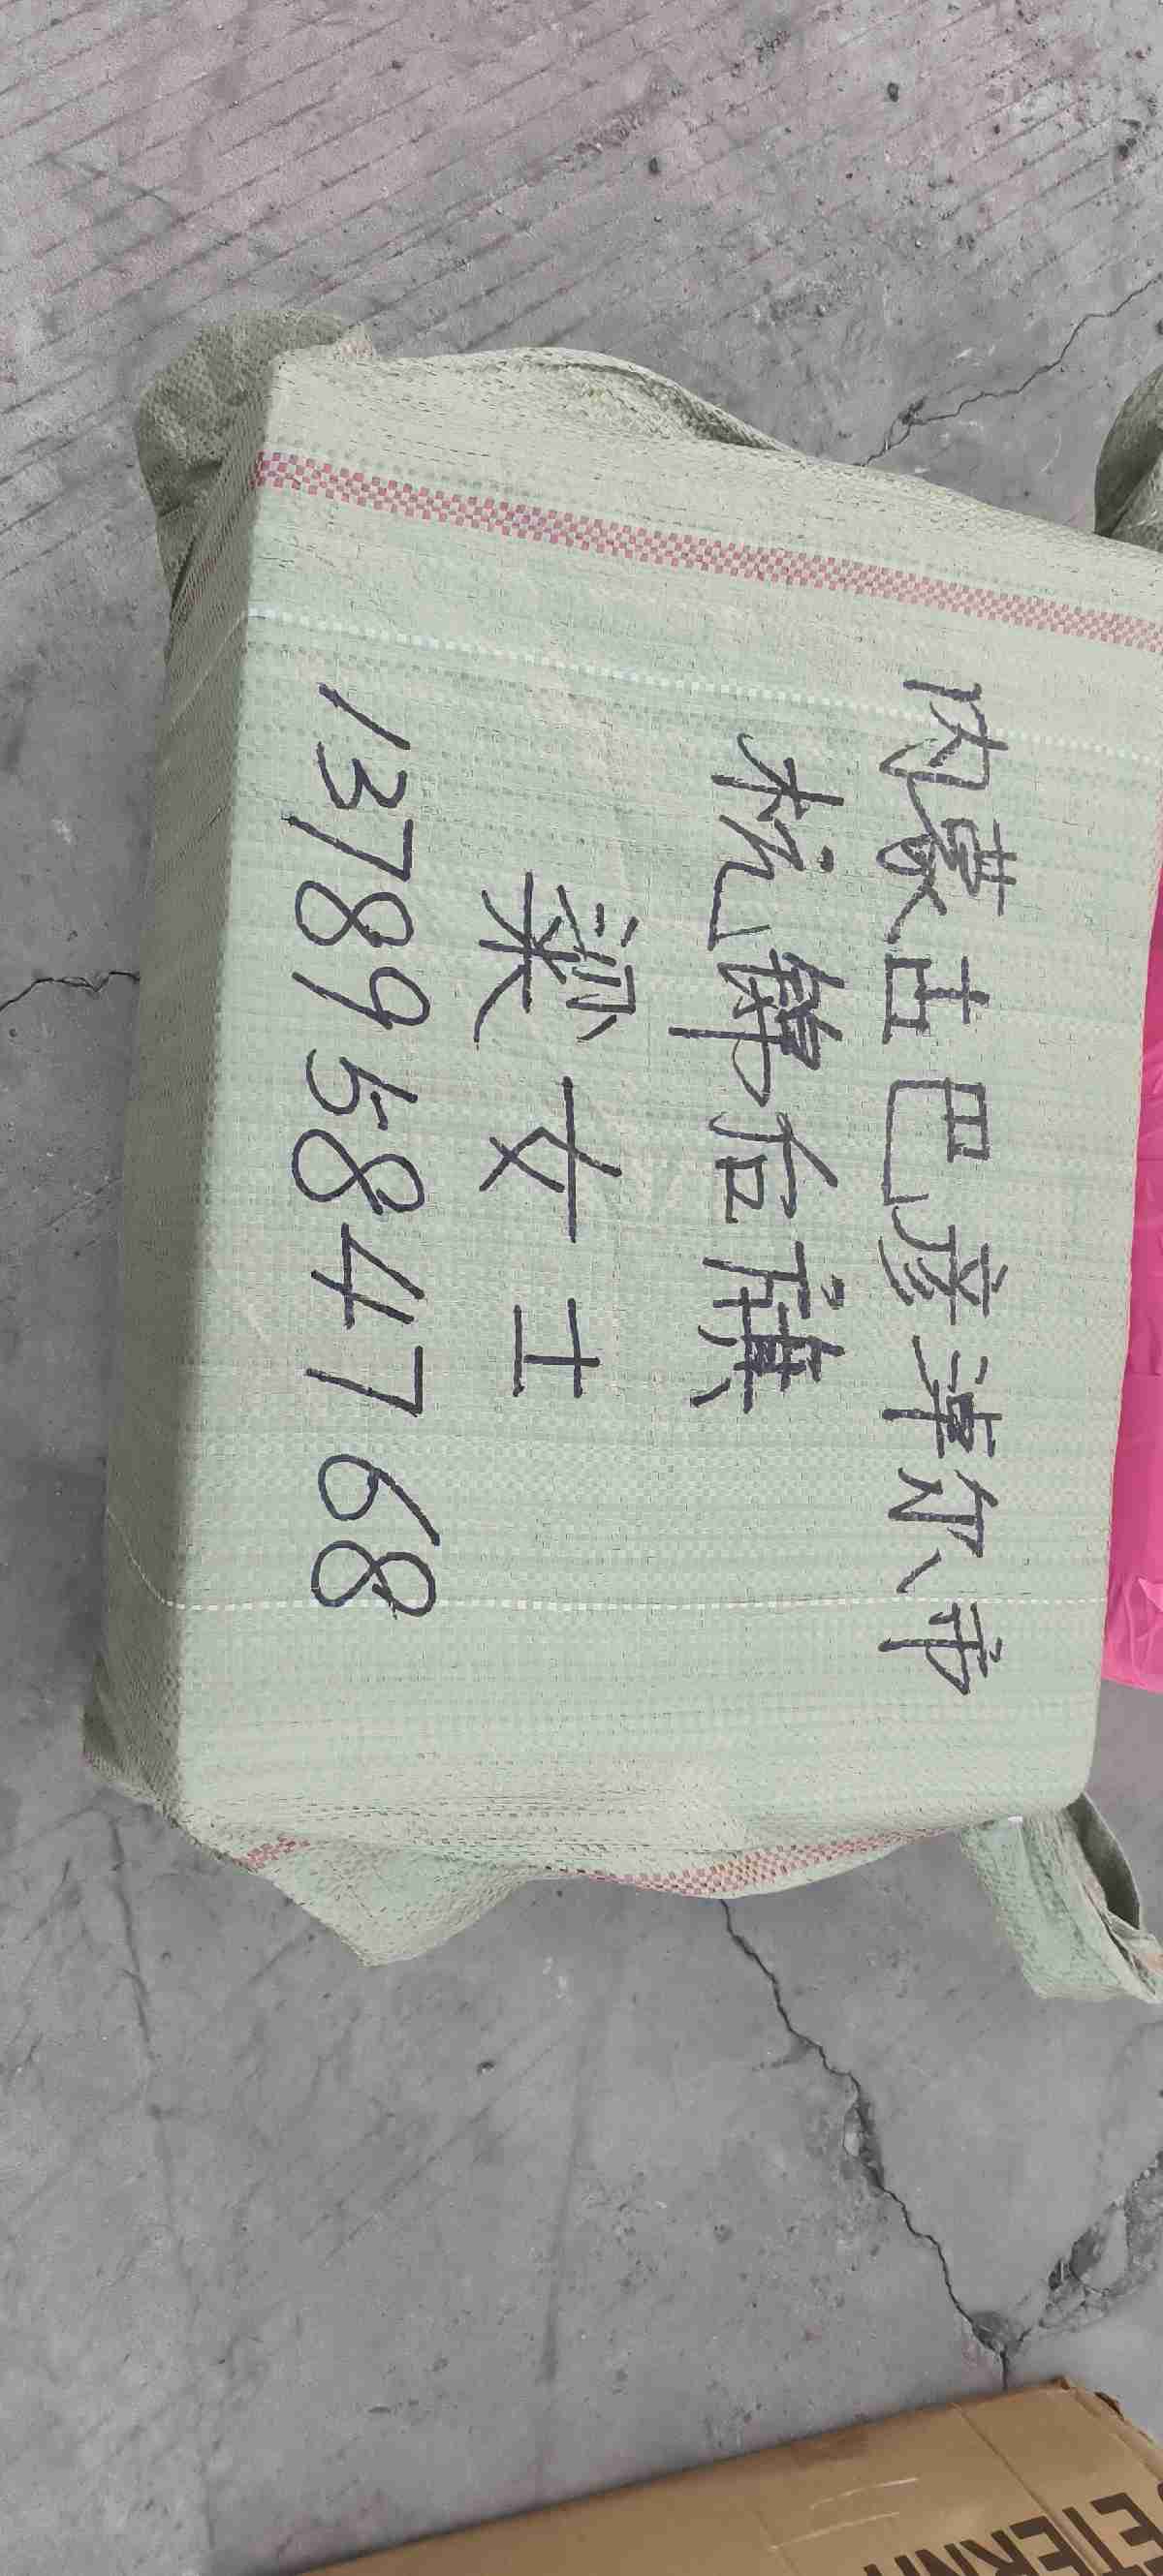 内蒙古巴彦淖尔市
杭锦后旗
梁女士
13789584768
ETERNI